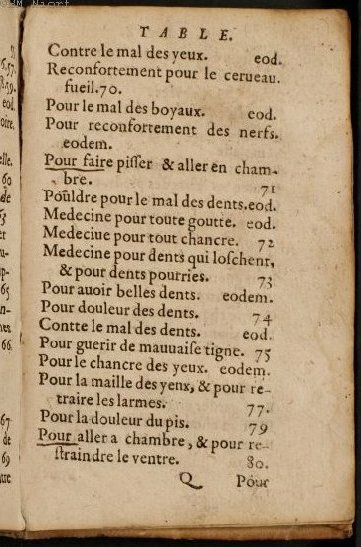 TABLE.
Contre le mal des yeux. eod.
Reconfortement pour le cerueau.
fueil.70.
Pour le mal des boyaux. eod.
Pour reconfortement des nerfs.
eodem.
Pour faire piſſer & aller en cham-
bre. 71
Pouldre pour le mal des dents.eod.
Medecine pour toute goutte. eod.
Medeciue pour tout chancre. 72
Medecine pour dents qui loſchent,
& pour dents pourries. 73
Pour auoir belles dents. eodem.
Pour douleur des dents. 74
Contte le mal des dents. eod.
Pour guerir de mauuaiſe tigne. 75
Pour le chancre des yeux. eodem.
Pour la maille des yenx, & pour re-
traire les larmes. 77.
Pour la douleur du pis. 79
Pour aller a chambre, & pour re-
ſtraindre le ventre. 80.
Q Pour